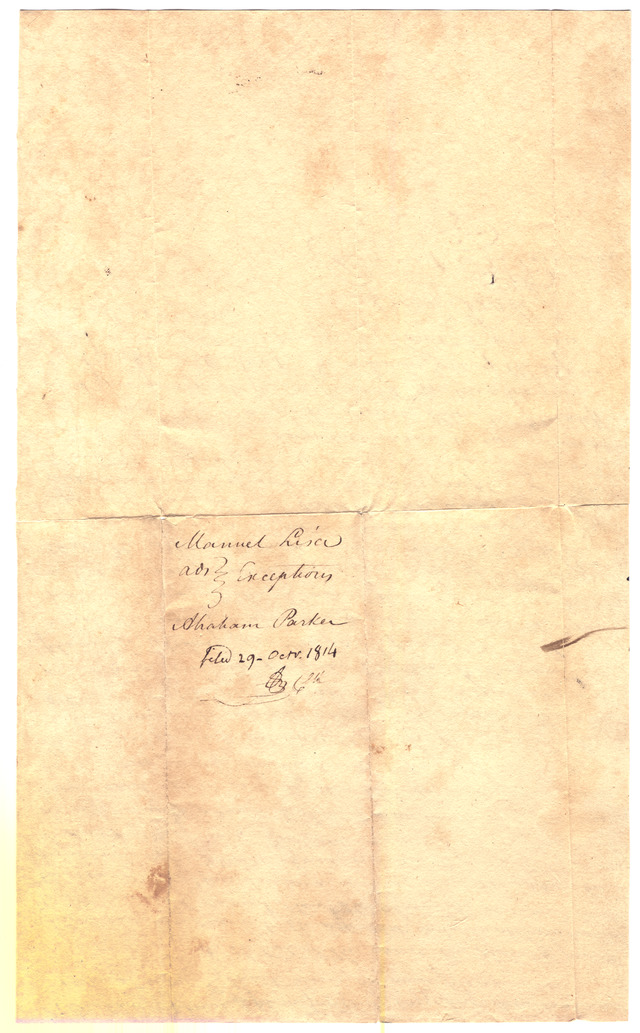 Manuel Lisa
ads } Exceptions
Abraham Parker
Filed 29- Octr. 1814
Clk